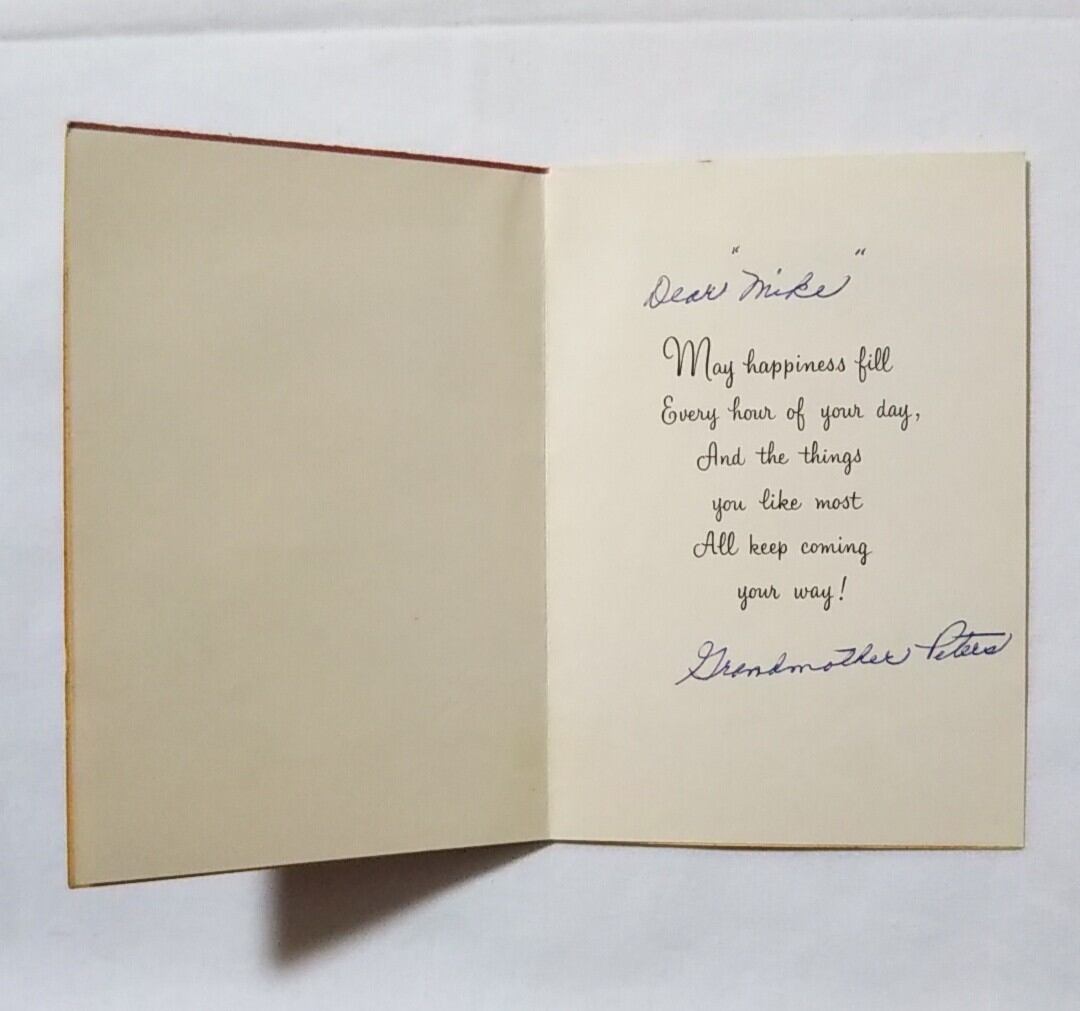 Dear "Mike"
May happiness fill
Every hour of your day,
And the things
you like most
All keep coming
your way!
Grandmother Peters